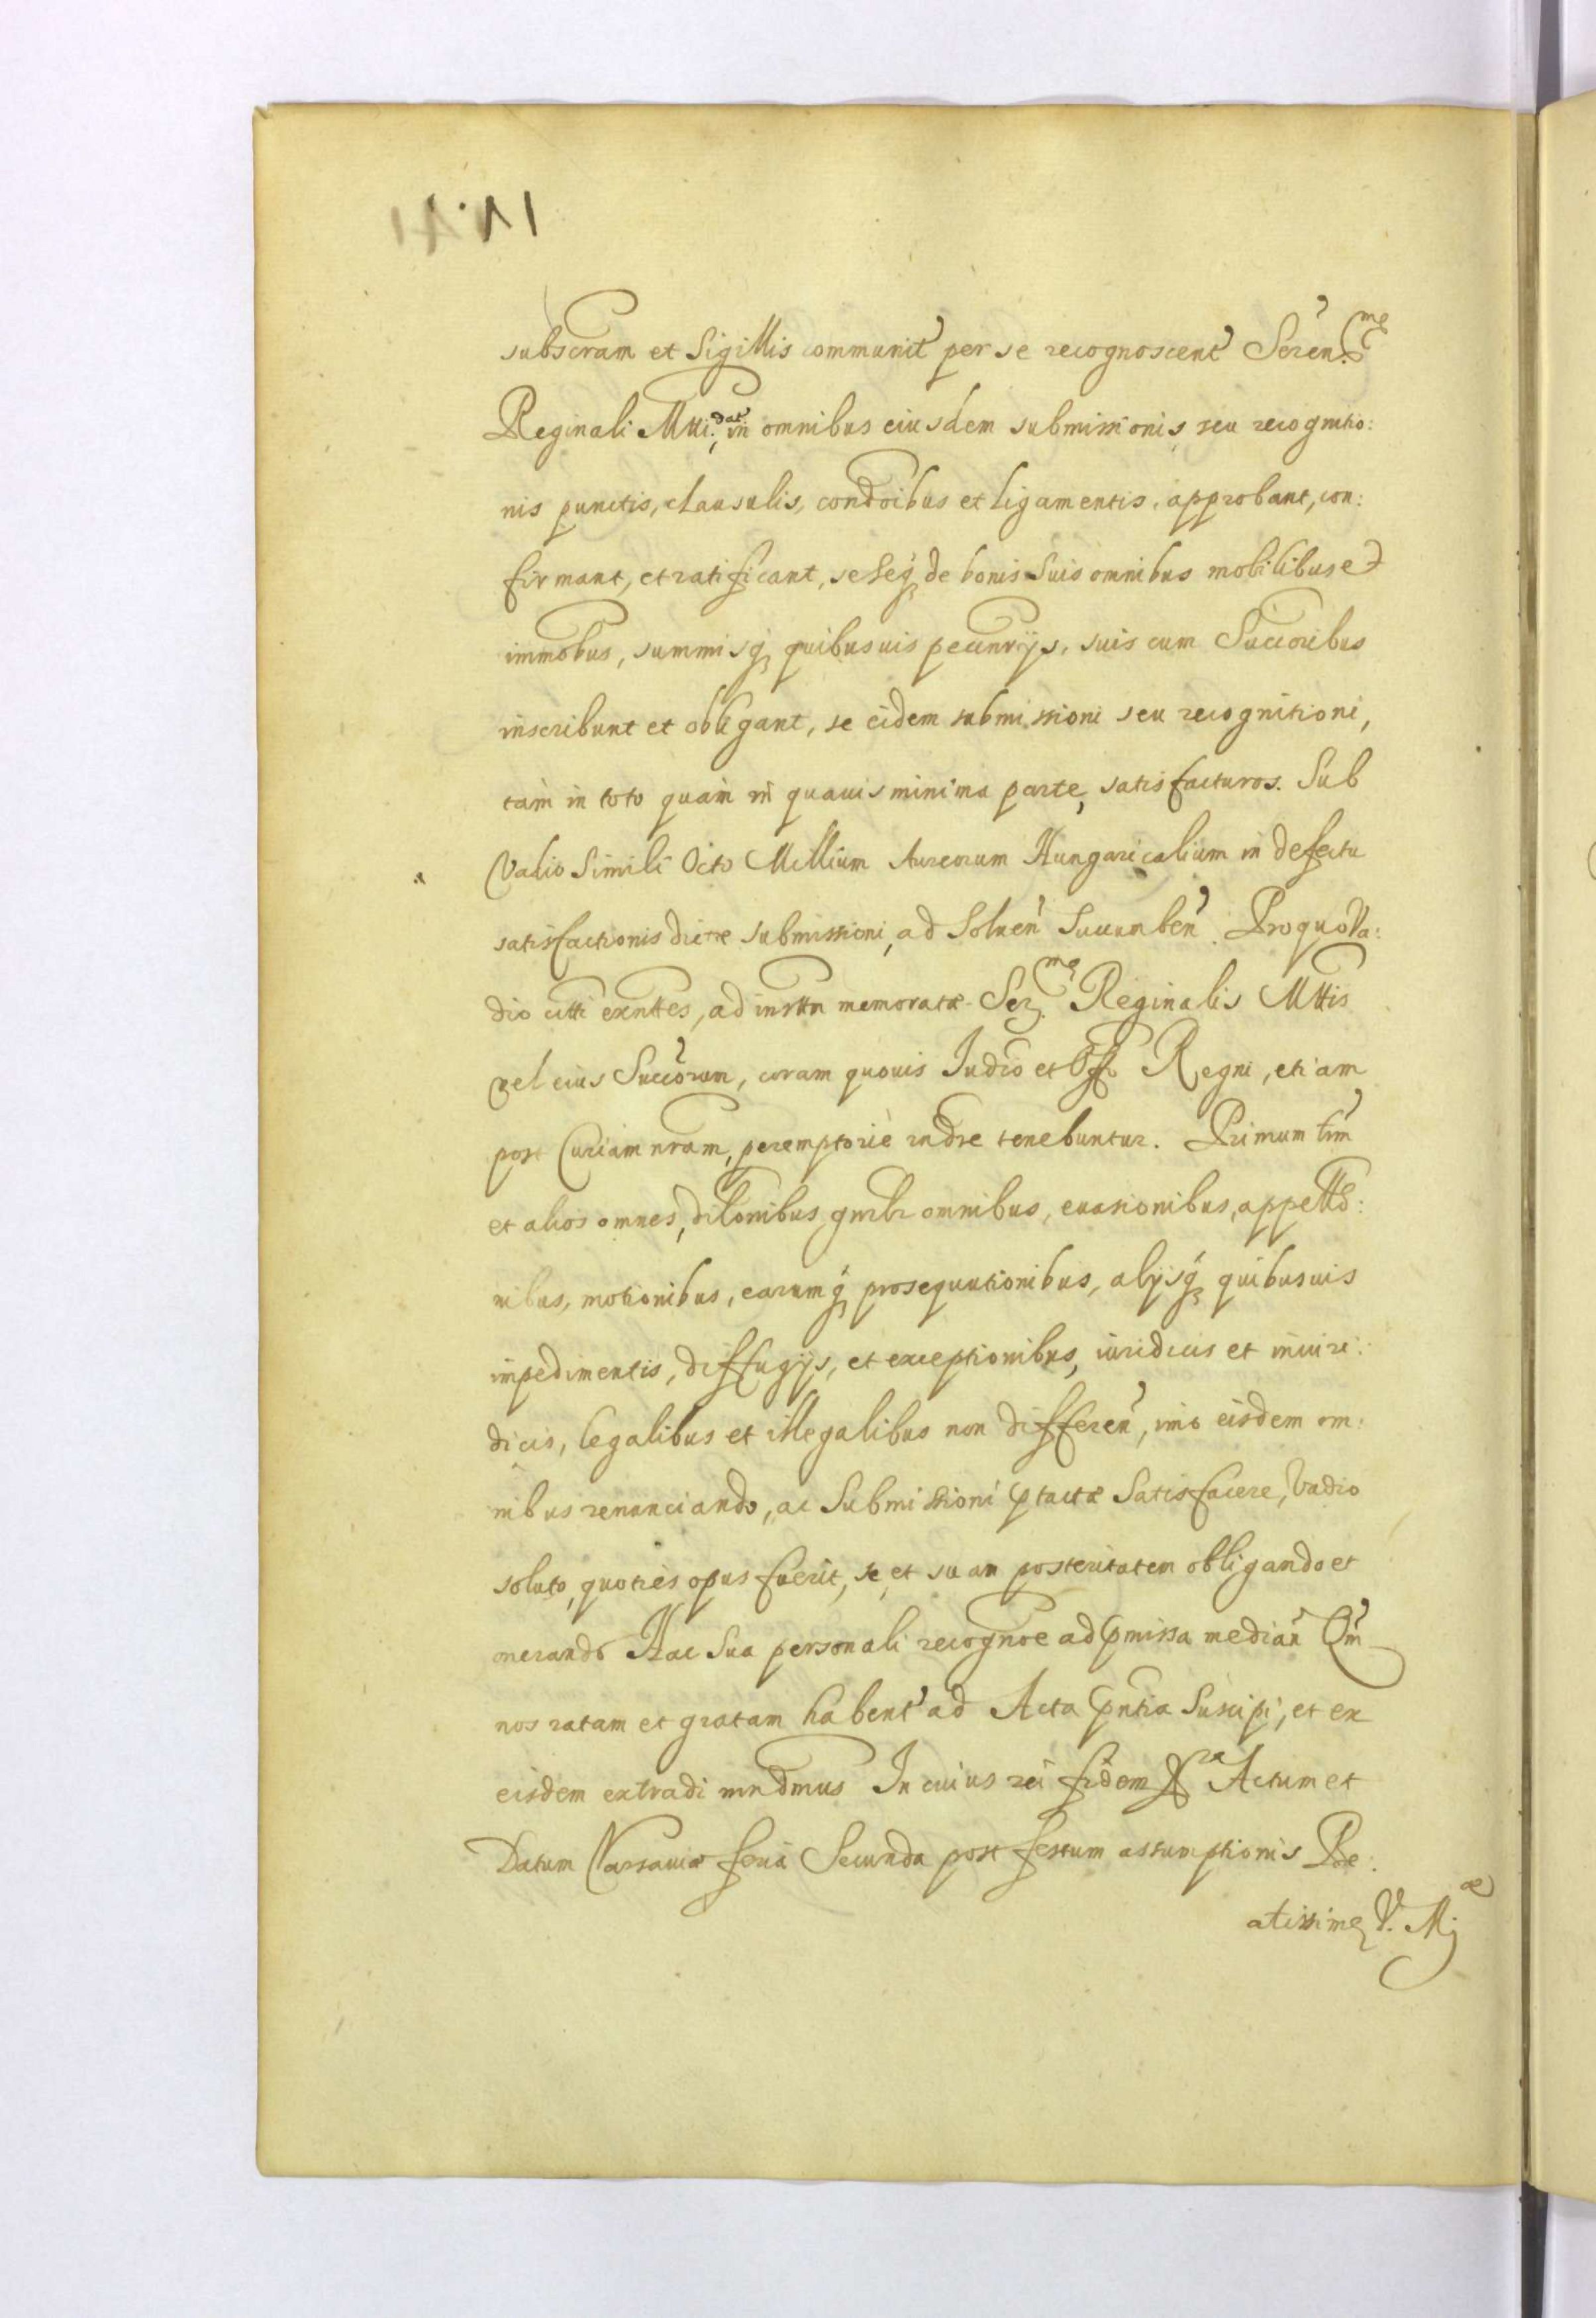 subscram et Sigillis communit per se recognoscent Seren.me
Reginali Mtti. dat in omnibus eiusdem submissionis seu recognitio:
nis punctis, clausulis, condoibus et ligamentis, approbant, con:
firmant, et ratificant, seseq de bonis suis omnibus mobilibus et
immobus, summisq quibusuis pecunrijs, suis cum Succoribus
inscribunt et obligant, se eidem submissioni seu recognitioni,
tam in toto quam in quauis minima parte, satisfacturos. Sub
Vadio Simili Octo Millium Aureorum Hungaricalium in defectu
satisfactionis dictae submissioni, ad Soluen Succumben. Pro quo Va:
dio citti exnttes, ad insttn memoratæ Ser.mæ Reginalis Mttis
vel eius Succorum, coram quouis Judio et Offo Regni, etiam
post Curiam nram, peremptoriè rndre tenebuntur. Primum trm
et alios omnes, dilonibus gnrlr omnibus, euasionibus, appello:
nibus, motionibus, earumq prosequutionibus, alijsq quibusuis
impedimentis, diffugijs, et exceptionibus, iuridicis et iniuri:
dicis, legalibus et illegalibus non differen, imo eisdem om:
nibus renunciando, ac Submissioni ptactæ Satisfacere, Vadio
soluto, quoties opus fuerit, se et suam posteritatem obligando et
onerando Hac Sua personali recognoe ad pmissa median Qm
nos ratam et gratam habent ad Acta pntia Suscipi, et ex
eisdem extradi mndmus In cuius rei fidem Actum et
Datum Varsauiæ feria Secunda post festum assumptionis Be:
atissimę V. Mæ